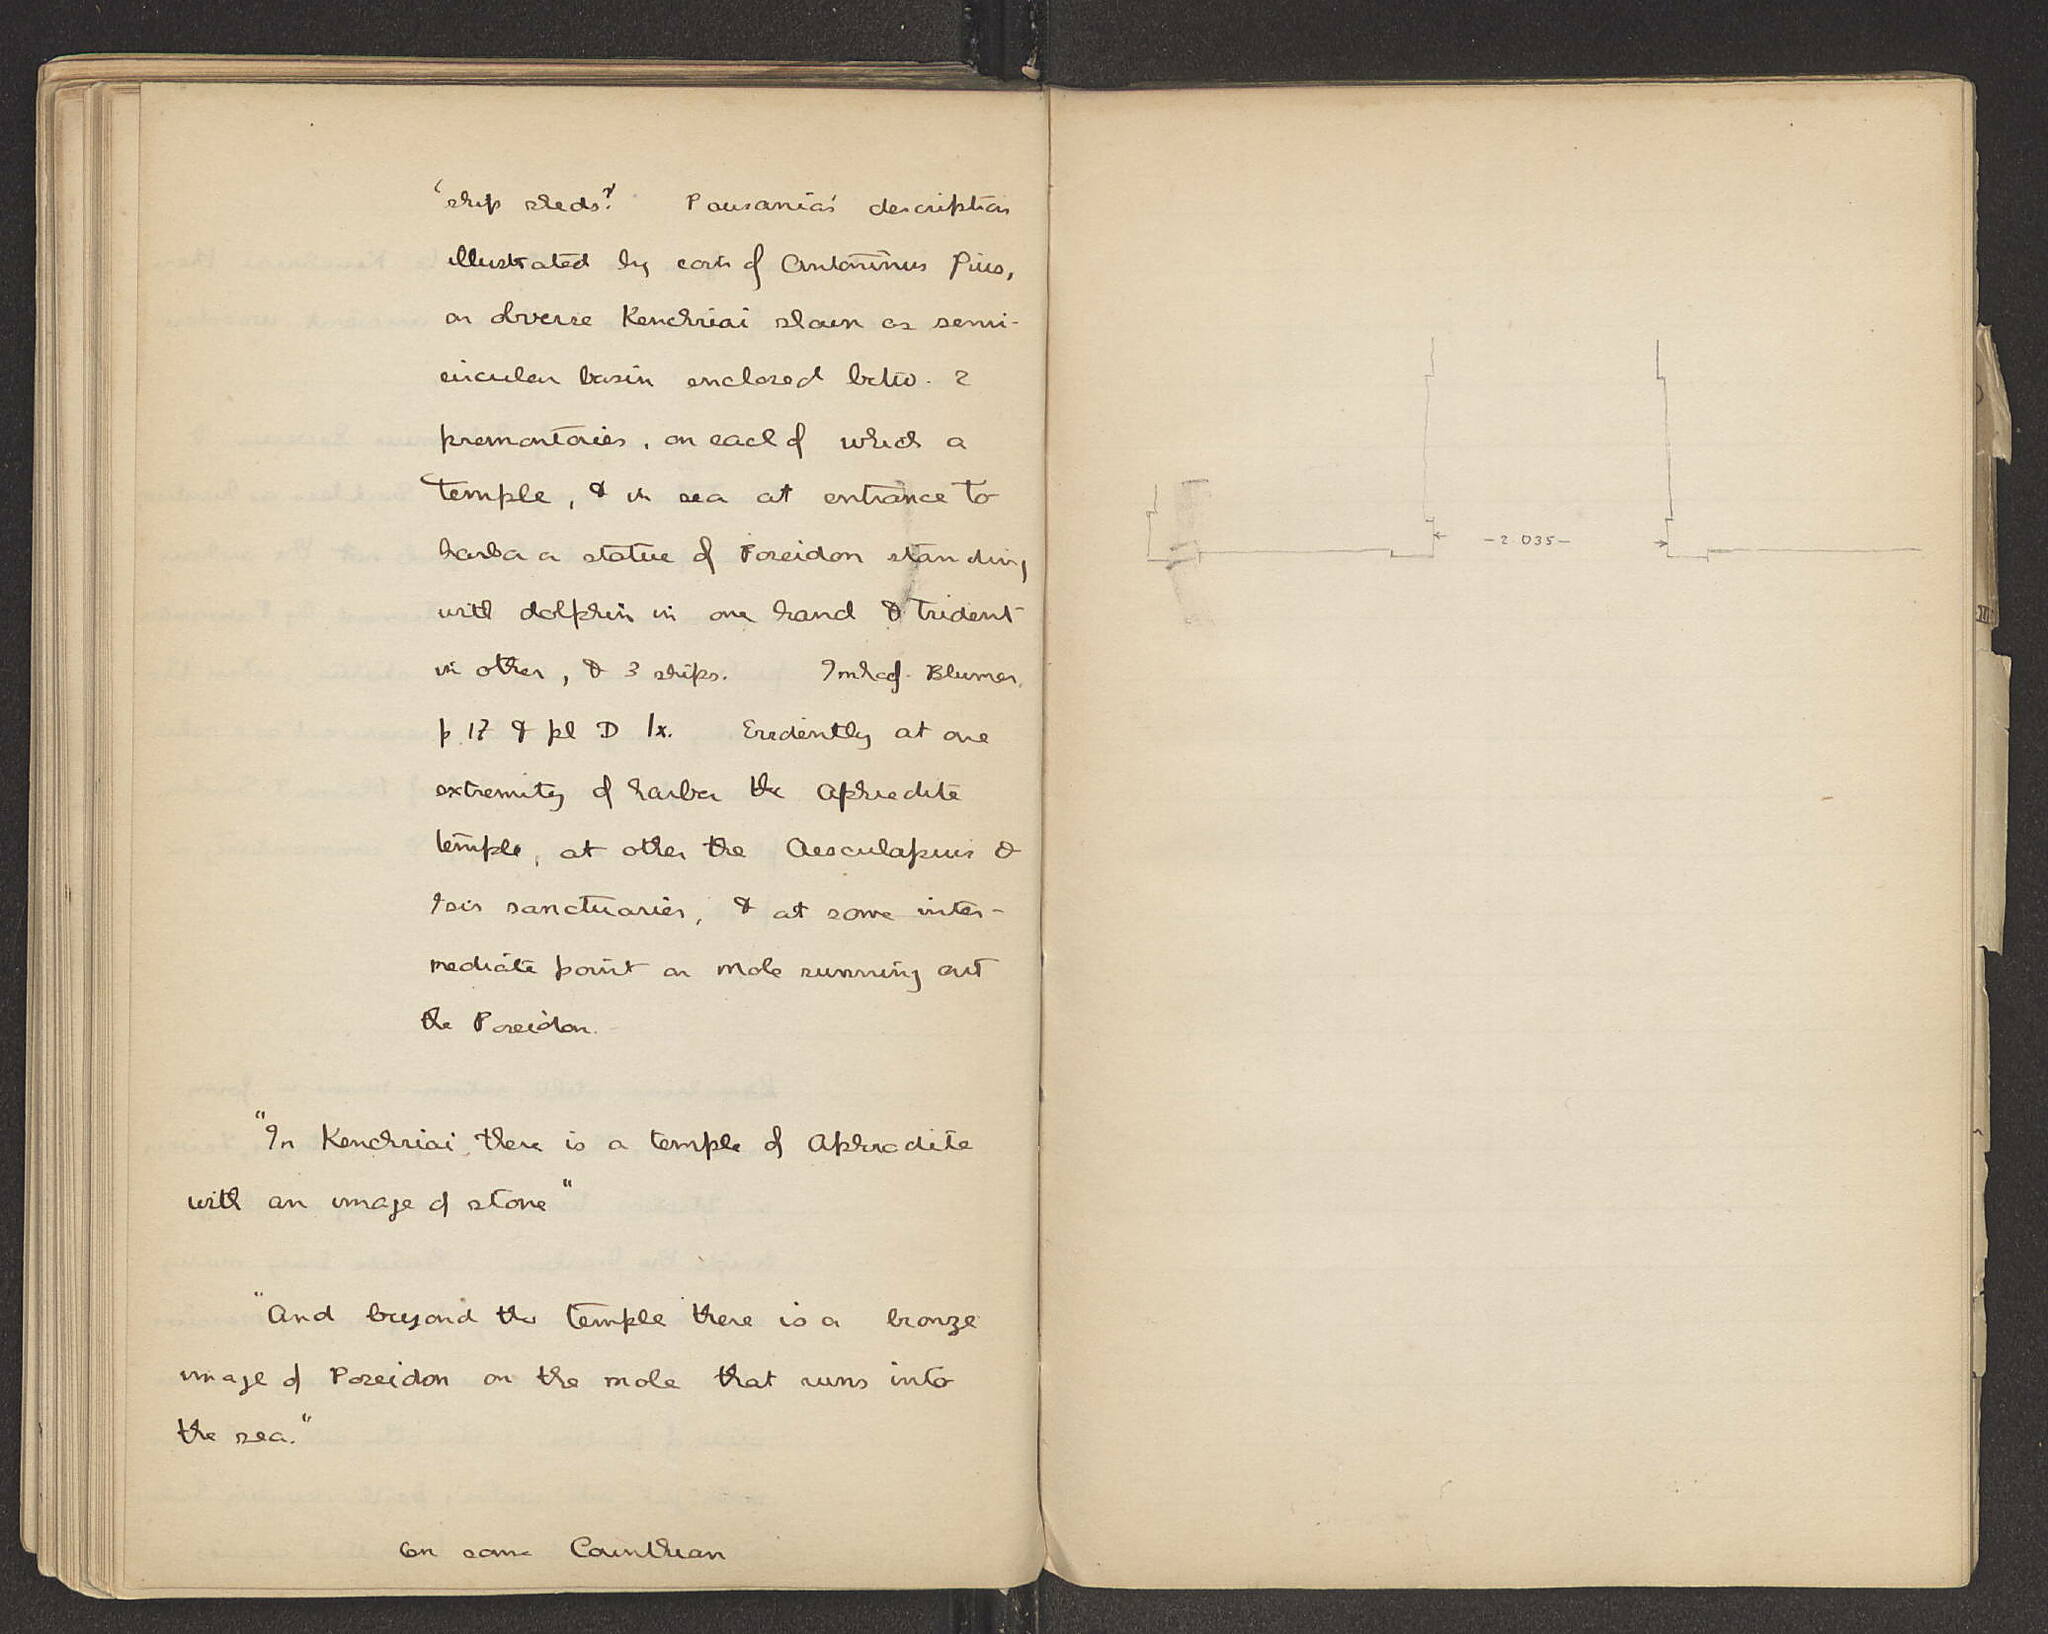 'ship sheds'? Pausanias' description
illustrated by coin of Antoninus Pius,
on obverse Kenchriai shown as semi-
circular basin enclosed betw. 2
promontories, on each of which a
temple, & in sea at entrance to
harbor a statue of Poseidon standing
with dolphin in one hand & trident
in other, & 3 ships. Imhoof-Blumer,
p 17 & pl D lx. Evidently at one
extremity of harbor the Aphrodite
temple, at other the Aesculapius &
Isis sanctuaries, & at some inter-
mediate point on mole running out
the Poseidon.
"In Kenchriai there is a temple of Aphrodite
with an image of stone"
"And beyond the temple there is a bronze
image of Poseidon on the mole that runs into
the sea."
On some Corinthian
-2.035-